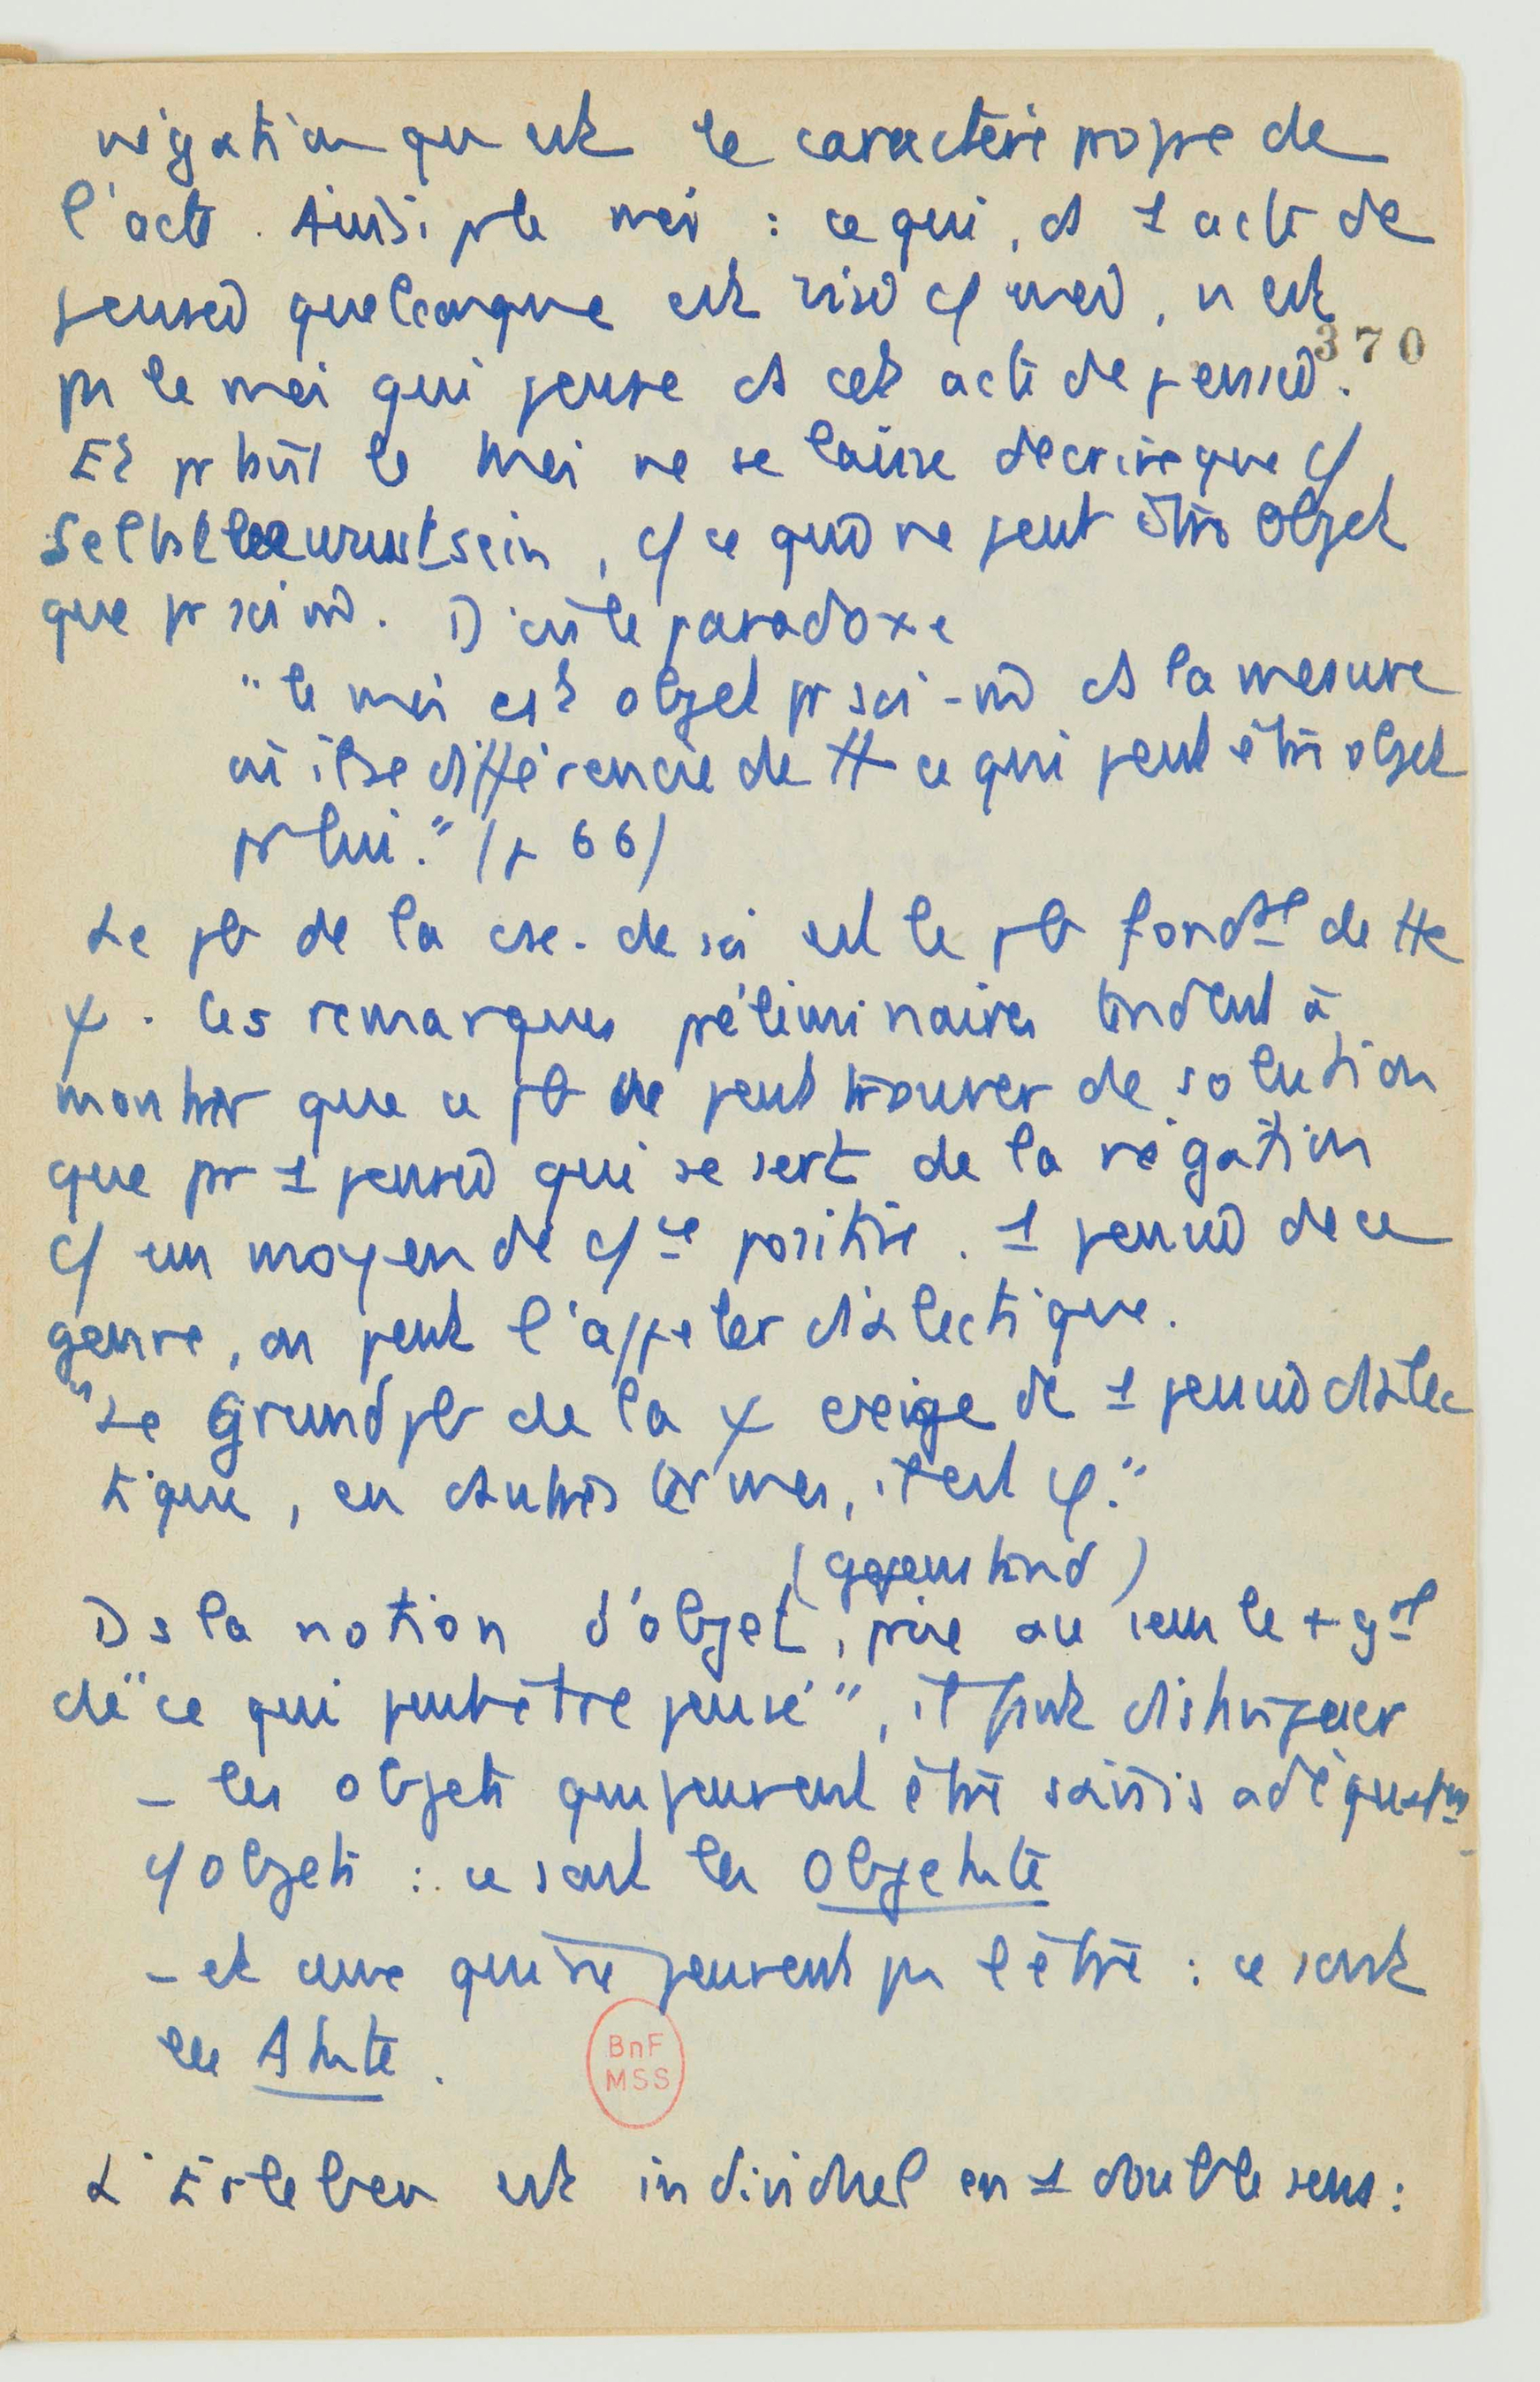 négation qui est le caractère propre de
l'acte. Ainsi pr le moi : ce qui, ds 1 acte de
pensée quelconque est visé c/ moi, n'est
370
pas le moi qui pense ds cet acte de pensée.
Et pr tant le moi ne se laisse décrire que c/
Selbstbewusstsein, c/ ce qui ne peut être objet
que pr soi-m̂. D'où le paradoxe
"le moi est objet pr soi-m̂ ds la mesure
où il se différencie de tt ce qui peut être objet
pr lui." (p 66)
Le pb de la cse. de soi est le pb fondtal de tte
φ. Les remarques préliminaires tendent à
montrer que ce pb ne peut trouver de solution
que pr 1 pensée qui se sert de la négation
c/ un moyen de c/ce positive. 1 pensée de ce
genre, on peut l'appeler dialectique.
"Le Grundpb de la φ exige de 1 pensée dialec
tique, en d'autres termes, il est φ."
(Gegenstand)
Ds la notion d'objet, prise au sens le + gal
de "ce qui peut être pensé", il faut distinguer
- les objets qui peuvent être saisis adéquatmt
c/ objets : ce sont les Objekte
- et ceux qui ne peuvent pas l'être : ce sont
les Akte.
BnF
MSS
L'Erleben est individuel en 1 double sens :